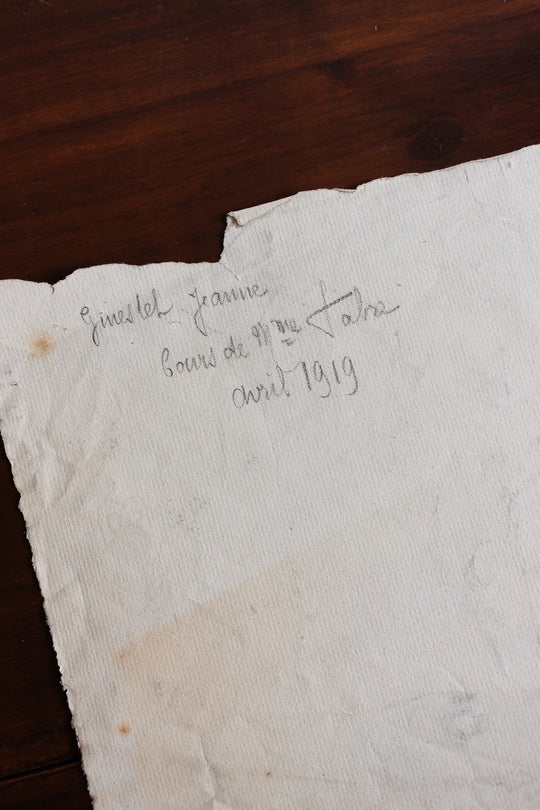 Ginestet Jeanne
Cours de Mme Fabre
avril 1919